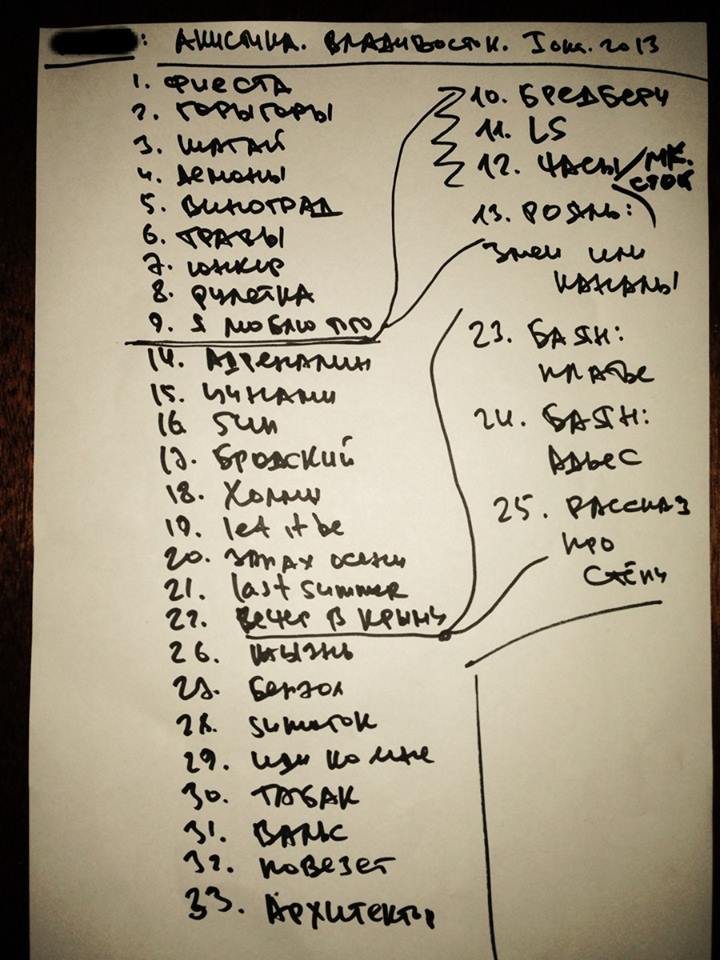 : АКУСТИКА. ВЛАДИВОСТОК. 1 окт. 2013
1. ФИЕСТА
2. ГОРЫ ГОРЫ
3. ШАГАЙ
4. ДЕМОНЫ
5. ВИНОГРАД
6. ТРАВЫ
7. ЮНКЕР
8. РУЛЕТКА
9. Я ЛЮБЛЮ
10. БРЕДБЕРИ
11. LS
12. ЧАСЫ/МК.
СТОК
13. РОЯЛЬ:
ЗМЕИ ИЛИ
КАНАЛЫ
14. АДРЕНАЛИН
15. ЦУНАМИ
16. 5 МИН
17. БРОДСКИЙ
18. ХОЛМЫ
19. let it be
20. ЗАПАХ ОСЕНИ
21. last summer
22. ВЕЧЕР В КРЫМУ
23. БАЯН:
ПЛАТЬЕ
24. БАЯН:
АДЬЕС
25. РАССКАЗ
ПРО
СТЁПУ
26. ЖЫЗНЬ
27. БЕНЗОЛ
28.
29. ИДИ КО МНЕ
30. ТАБАК
31. ВАЛЬС
32. ПОВЕЗЕТ
33. АРХИТЕКТОР